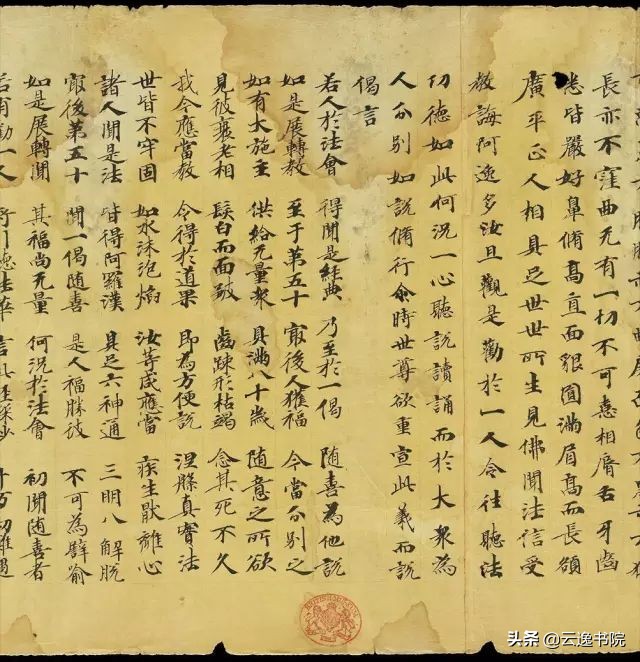 長亦不窪曲无有一切不可憙相脣舌牙齒
悉皆嚴好鼻脩高直面貌圓滿眉高而長額
廣平正人相具足世世所生見佛聞法信受
教誨阿逸多汝且觀是勸於一人令往聽法
功德如此何況一心聽說讀誦而於大眾為
人分別如說脩行尒時世尊欲重宣此義而說
偈言
若人於法會 得聞是經典 乃至於一偈 隨喜為他說
如是展轉教 至于第五十 㝡後人獲福 今當分別之
如有大施主 供給无量眾 具滿八十歲 隨意之所欲
見彼衰老相 髮白而面皺 齒踈形枯竭 念其死不久
我今應當教 令得於道果 即為方便說 涅槃真實法
世皆不牢固 如水沫泡焰 汝等咸應當 疾生猒離心
諸人聞是法 皆得阿羅漢 具足六神通 三明八解脫
㝡後第五十 聞一偈隨喜 是人福勝彼 不可為譬喻
如是展轉聞 其福尚无量 何況於法會 初聞隨喜者
若有勸一人
头条 @云逸书院